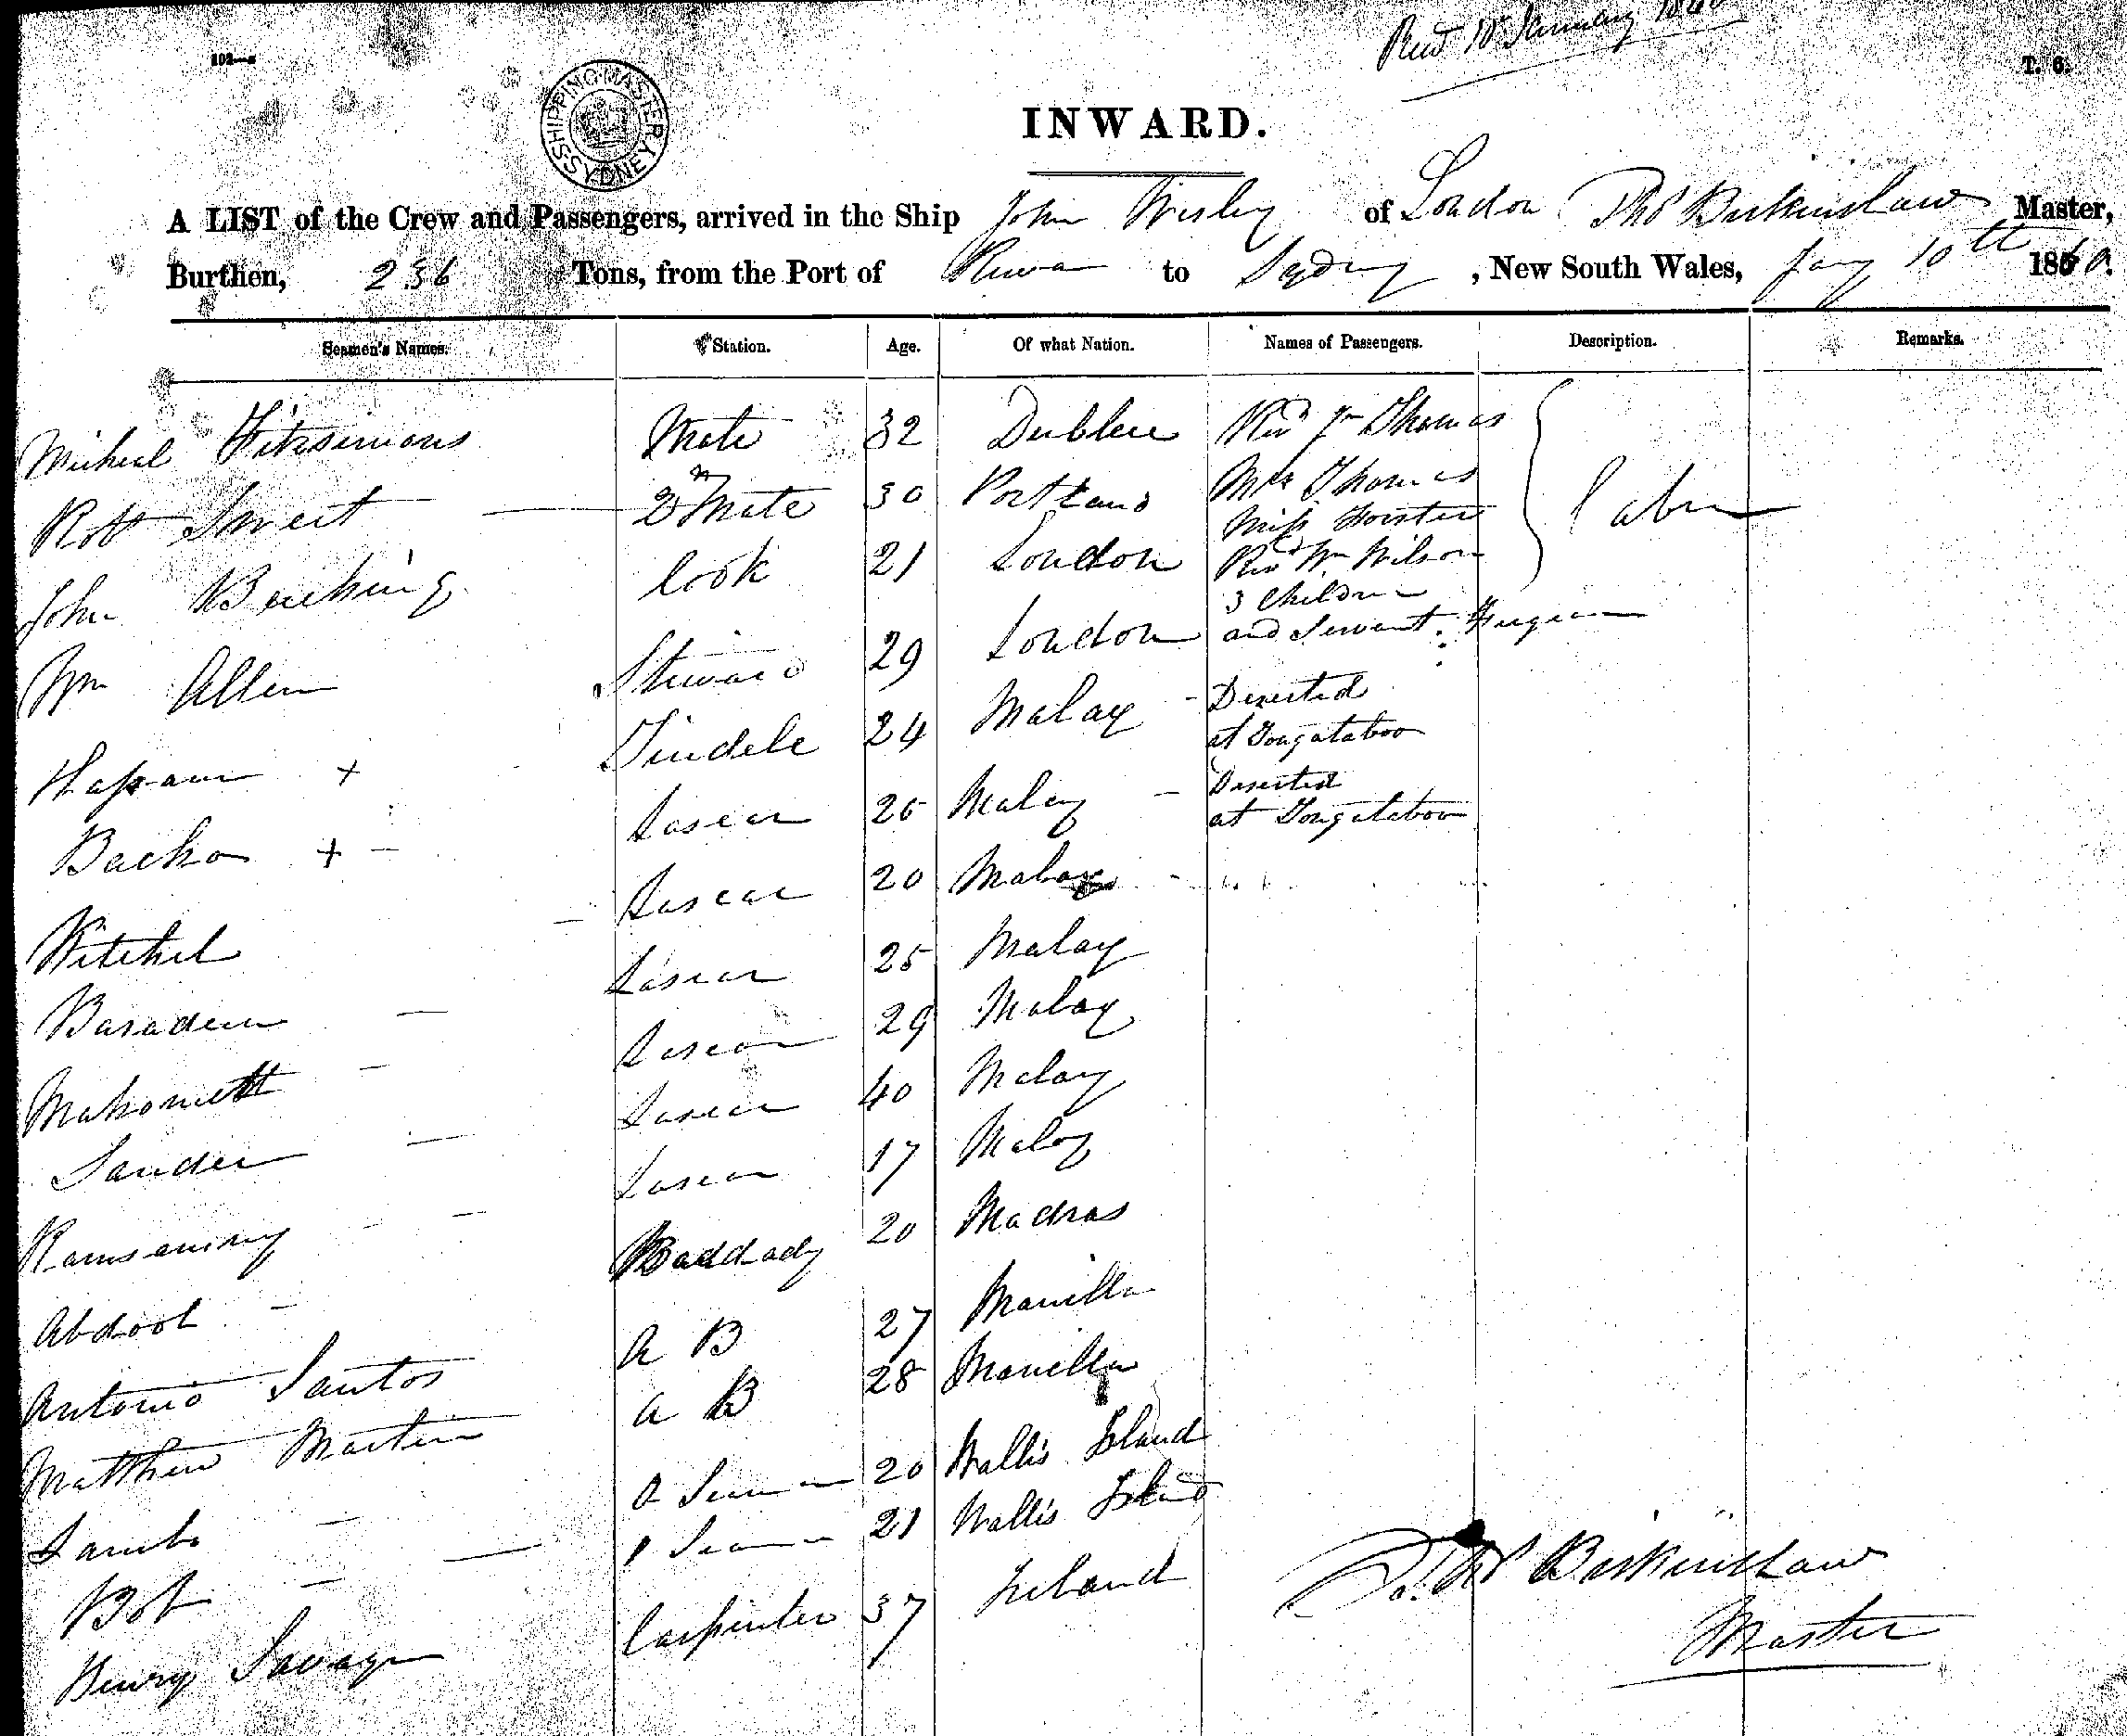 102—
Recd 10 January 1860
T. 6.
SHIPPING MASTER SYDNEY
INWARD.
A LIST of the Crew and Passengers, arrived in the Ship John Wesley of London Thos Birkinshaw Master,
Burthen, 236 Tons, from the Port of Rewa to Sydney, New South Wales, Jany 10th 1860
Seamen's Names. Station. Age. Of what Nation. Names of Passengers. Description. Remarks.
Micheal Fitzsimons Mate 32 Dublin Revd Jn Thomas
Robt Sweet 2nd Mate 30 Portland Mrs Thomas
Miss Forster Cabin
John 21 Cook London Revd Wm Wilson
3 Children
Wm Allen Steward 29 London and Servant. Feegean
Hassan + Tindele 24 Malay - Deserted
at Tongataboo
Backo + Lascar 26 Malay - Deserted
at Tongataboo
Kitchil Lascar 20 Malay
Basadeen Lascar 25 Malay
Mahomett Lascar 29 Malay
Lascar 40 Malay
Ramsammy Lascar 17 Malay
Abdool 20 Madras
Antonio Santos A B 27 Manilla
Matthew Martin A B 28 Manilla
O Seaman 20 Wallis Island
Bob O Seaman 21 Wallis Island
Henry Savage Carpenter 37 Ireland
Thos Birkinshaw
Master